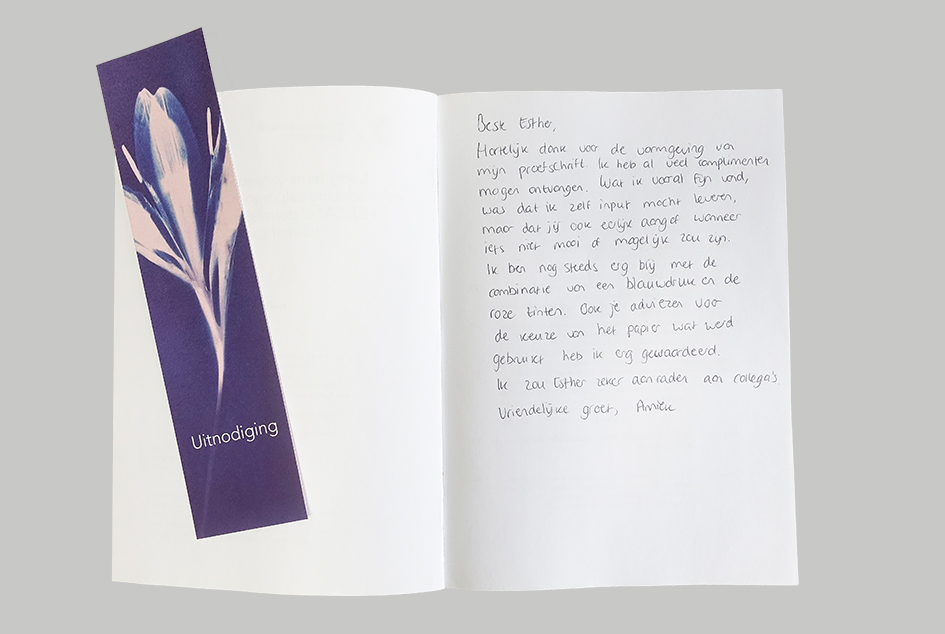 Uitnodiging
Beste Esther,
Hartelijk dank voor de vormgeving van
mijn proefschrift. Ik heb al veel complimenten
mogen ontvangen. Wat ik vooral fijn vond,
was dat ik zelf input mocht leveren,
maar dat jij ook eerlijk aangaf wanneer
iets niet mooi of mogelijk zou zijn.
Ik ben nog steeds erg blij met de
combinatie van een blauwdruk en de
roze tinten. Ook je adviezen voor
de keuze van het papier wat werd
gebruikt heb ik erg gewaardeerd.
Ik zou Esther zeker aanraden aan collega's
Vriendelijke groet, Anniek